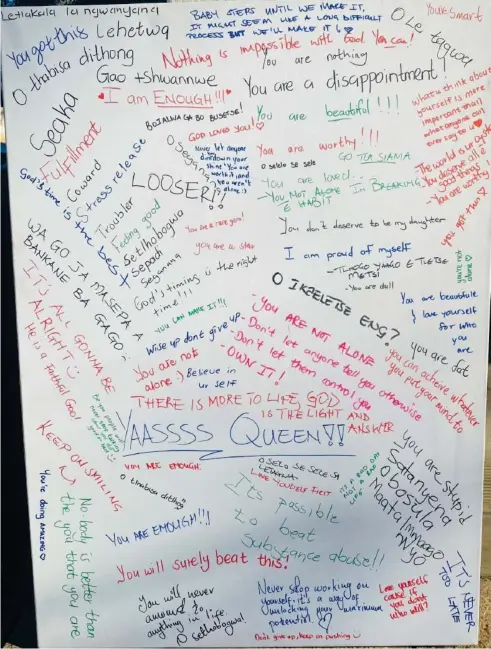 Letlakala la ngwanyana
You got this
Lehetwa
O thabisa dithong
BABY STEPS UNTIL WE MAKE IT,
IT MIGHT SEEM LIKE A LONG DIFFICULT
PROCESS BUT WE'LL MAKE IT
O le tagwa
You're Smart
Nothing is impossible with God. You can!
You are nothing
Gao tshwannwe
You are a disappointment!
I am ENOUGH!!!
Seaka
Fulfillment
BOJALWA GA BO BUSETSE!
GOD LOVES YOU!
You are beautiful!!!!
what u think about
yourself is more
important than
what anyone can
ever say to u
Never let anyone
dim down your
shine! You are
worth it, and
you aren't
alone :)
You are worthy!!!
O selo se sele
GO TLA SIAMA
The world is ur oyster
You deserve all the
good things!
- You are worthy
Coward
Stress release
God's time is the best
LOOSER!!
You are loved...
- You NOT ALONE IN BREAKING
E HABIT
Troubler
Feeling good
Setlhobogwa
Sepodi
Segamma
You are a rare gem!
you are a star
You don't deserve to be my daughter
you got this
I am proud of myself
- TLHOGO YAGO E TLETSE
METSI
- You are dull
you're not
alone
God's timing is the right
time!!!
WA GO JA MASEPA A
BANKANE BA GAGO,
O IKEELETSE ENG?
YOU CAN MAKE IT!!!
You are beautiful
& love yourself
for who
you are
IT'S ALL GONNA BE
ALRIGHT
He is a Faithful God!
Wise up dont give up
- YOU ARE NOT ALONE
- Don't let anyone tell you otherwise
- Don't let them control you
OWN IT!
you are fat
You are not
alone :) Believe in
ur self
you can achieve whatever
you put your mind to
THERE IS MORE TO LIFE, GOD
IS THE LIGHT AND
ANSWER
YAASSSS QUEEN!!
KEEP ON SMILING
YOU ARE ENOUGH.
O SELO SE SELE SA
LOVE YOURSELF FIRST
O thabisa dithong
You are stupid
Satanyena
Obosula
Maatla Mmaago
Nyo
IT'S A BAD DAY
NOT A BAD
LIFE
It's possible
to beat
Substance abuse!!
You're doing AMAZING
No body is better than
the you that you are
YOU ARE ENOUGH!!!
You will surely beat this!
IT'S NEVER
TOO LATE
You will never
amount to
anything in life.
O setlhobogwa!
Never stop working on
yourself it's a way of
unlocking your maximum
potential
Love yourself
cause if
you dont
who will?
Don't give up, keep on pushing